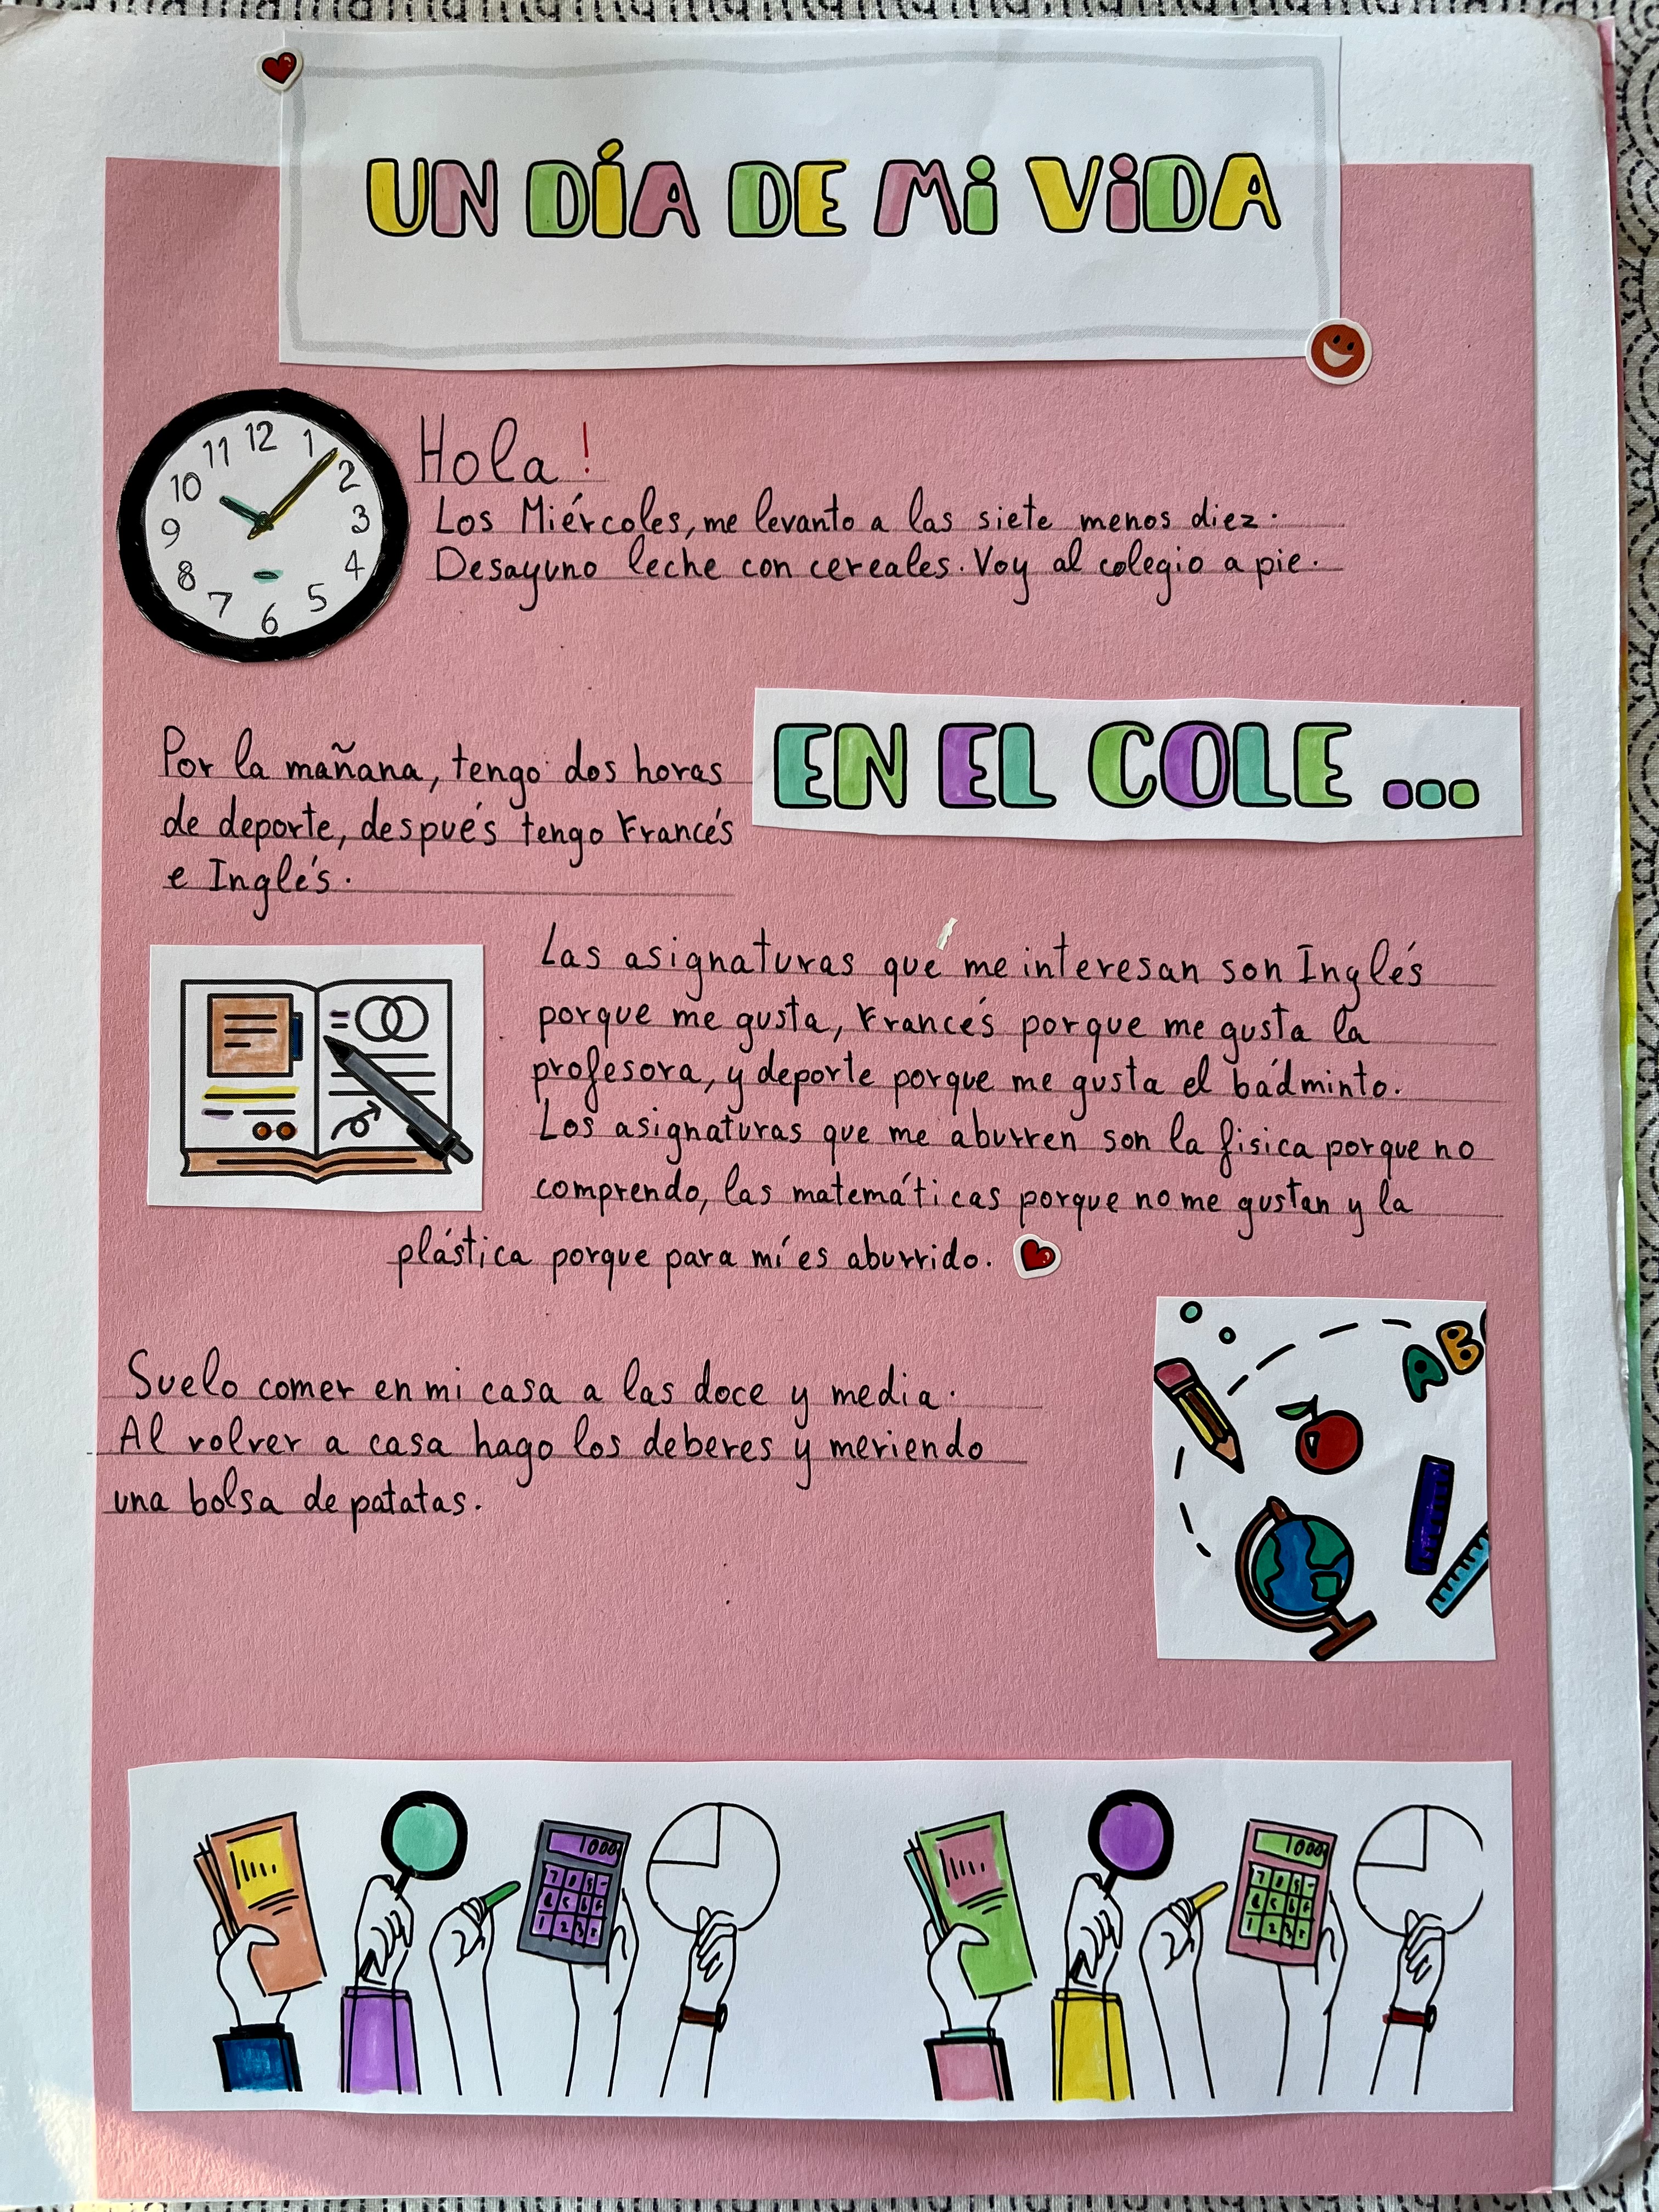 UN DÍA DE Mi ViDA
12
11
1
10
2
9
3
8
4
7
5
6
Hola !
Los Miércoles, me levanto a las siete menos diez.
Desayuno leche con cereales. Voy al colegio a pie.
EN EL COLE ...
Por la mañana, tengo dos horas
de deporte, después tengo Francés
e Inglés.
Las asignaturas qué me interesan son Inglés
porque me gusta, Francés porque me gusta la
profesora, y deporte porque me gusta el bádminto.
Los asignaturas que me aburren son la fisica porque no
comprendo, las matemáticas porque no me gustan y la
plástica porque para mí es aburrido.
AB
Suelo comer en mi casa a las doce y media.
Al volver a casa hago los deberes y meriendo
una bolsa de patatas.
1000
1000